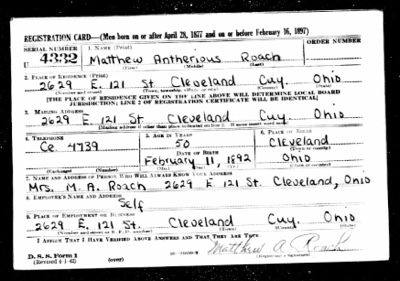 REGISTRATION CARD—(Men born on or after April 28, 1877 and on or before February 16, 1897)
SERIAL NUMBER 1. NAME (Print) ORDER NUMBER
U 4332 Matthew Antherious Roach
(First) (Middle) (Last)
2. PLACE OF RESIDENCE (Print)
2629 E. 121 St. Cleveland Cuy. Ohio
(Number and street) (Town, township, village or city) (County) (State)
[THE PLACE OF RESIDENCE GIVEN ON THE LINE ABOVE WILL DETERMINE LOCAL BOARD
JURISDICTION; LINE 2 OF REGISTRATION CERTIFICATE WILL BE IDENTICAL]
3. MAILING ADDRESS
2629 E. 121 St. Cleveland Cuy. Ohio
[Mailing address if other than place indicated on line 2. If same insert word same]
4. TELEPHONE 5. AGE IN YEARS 6. PLACE OF BIRTH
Ce. 4739 50 Cleveland
DATE OF BIRTH (Town or county)
February 11, 1892 Ohio
(Exchange) (Number) (Mo.) (Day) (Yr.) (State or country)
7. NAME AND ADDRESS OF PERSON WHO WILL ALWAYS KNOW YOUR ADDRESS
Mrs. M. A. Roach 2629 E. 121 St. Cleveland, Ohio
8. EMPLOYER'S NAME AND ADDRESS
Self
9. PLACE OF EMPLOYMENT OR BUSINESS
2629 E. 121 St. Cleveland Cuy. Ohio
(Number and street or R. F. D. number) (Town) (County) (State)
I AFFIRM THAT I HAVE VERIFIED ABOVE ANSWERS AND THAT THEY ARE TRUE.
Matthew A. Roach
D. S. S. Form 1
(Revised 4-1-42) (over) (Registrant's signature)